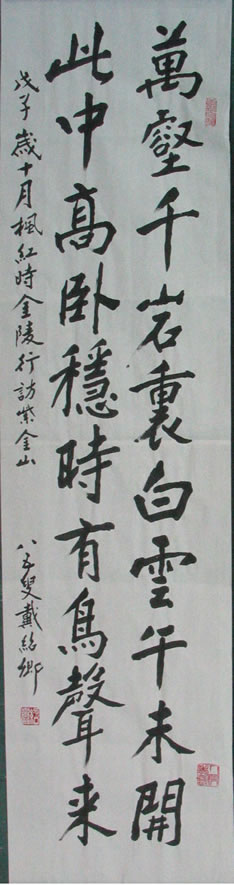 萬壑千岩裏白雲午未開
此中高卧穩時有鳥聲来
戊子歲十月楓紅時金陵行訪紫金山
八五叟戴紹鄉